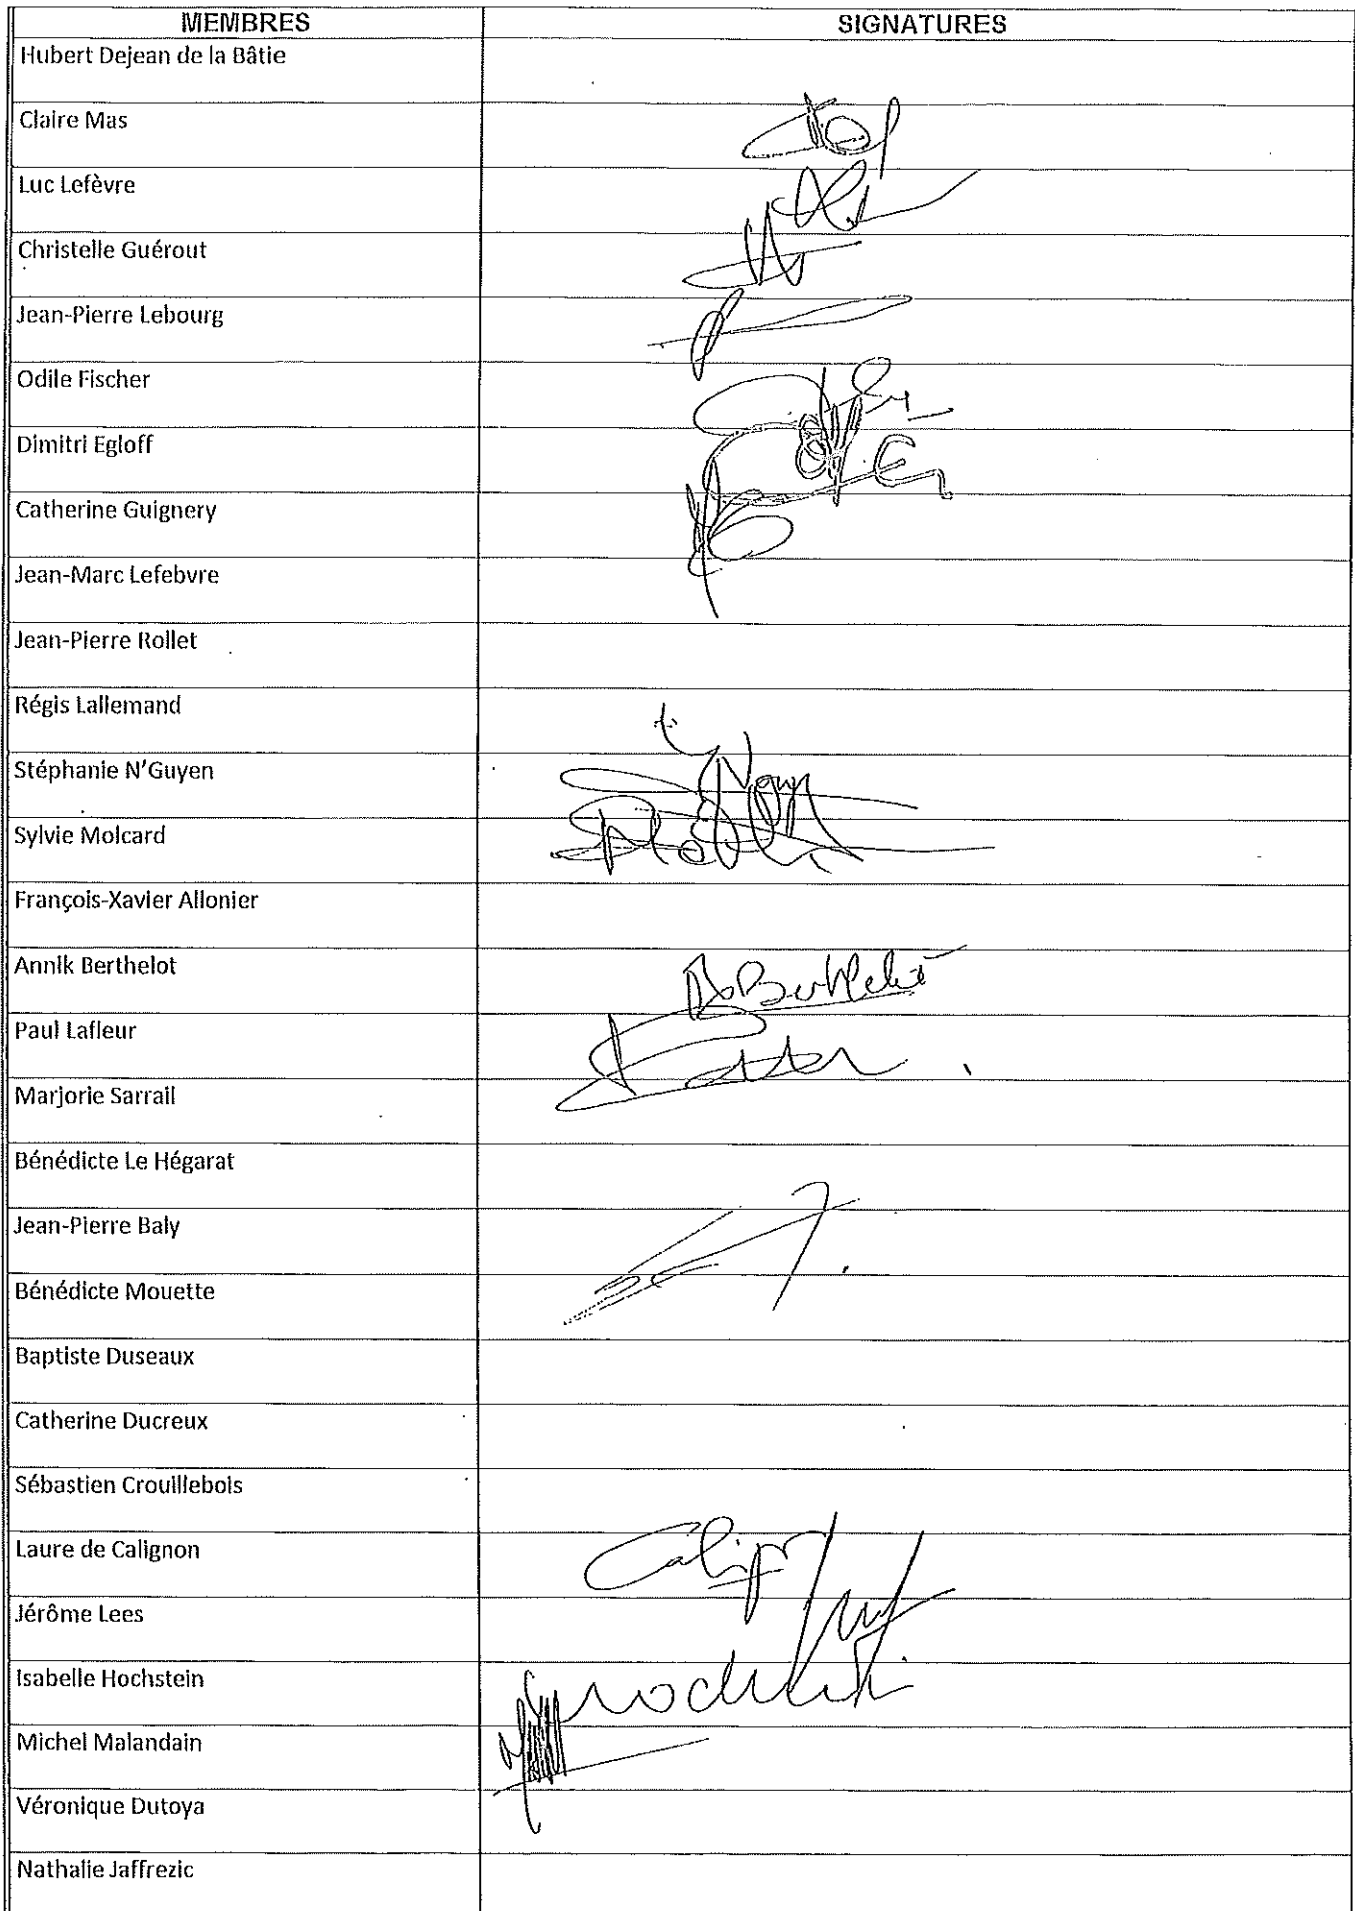 MEMBRES SIGNATURES
Hubert Dejean de la Bâtie
Claire Mas
Luc Lefèvre
Christelle Guérout
Jean-Pierre Lebourg
Odile Fischer
Dimitri Egloff
Catherine Guignery
Jean-Marc Lefebvre
Jean-Pierre Rollet
Régis Lallemand
Stéphanie N'Guyen
Sylvie Molcard
François-Xavier Allonier
Annik Berthelot
Paul Lafleur
Marjorie Sarrail
Bénédicte Le Hégarat
Jean-Pierre Baly
Bénédicte Mouette
Baptiste Duseaux
Catherine Ducreux
Sébastien Crouillebois
Laure de Calignon
Jérôme Lees
Isabelle Hochstein
Michel Malandain
Véronique Dutoya
Nathalie Jaffrezic